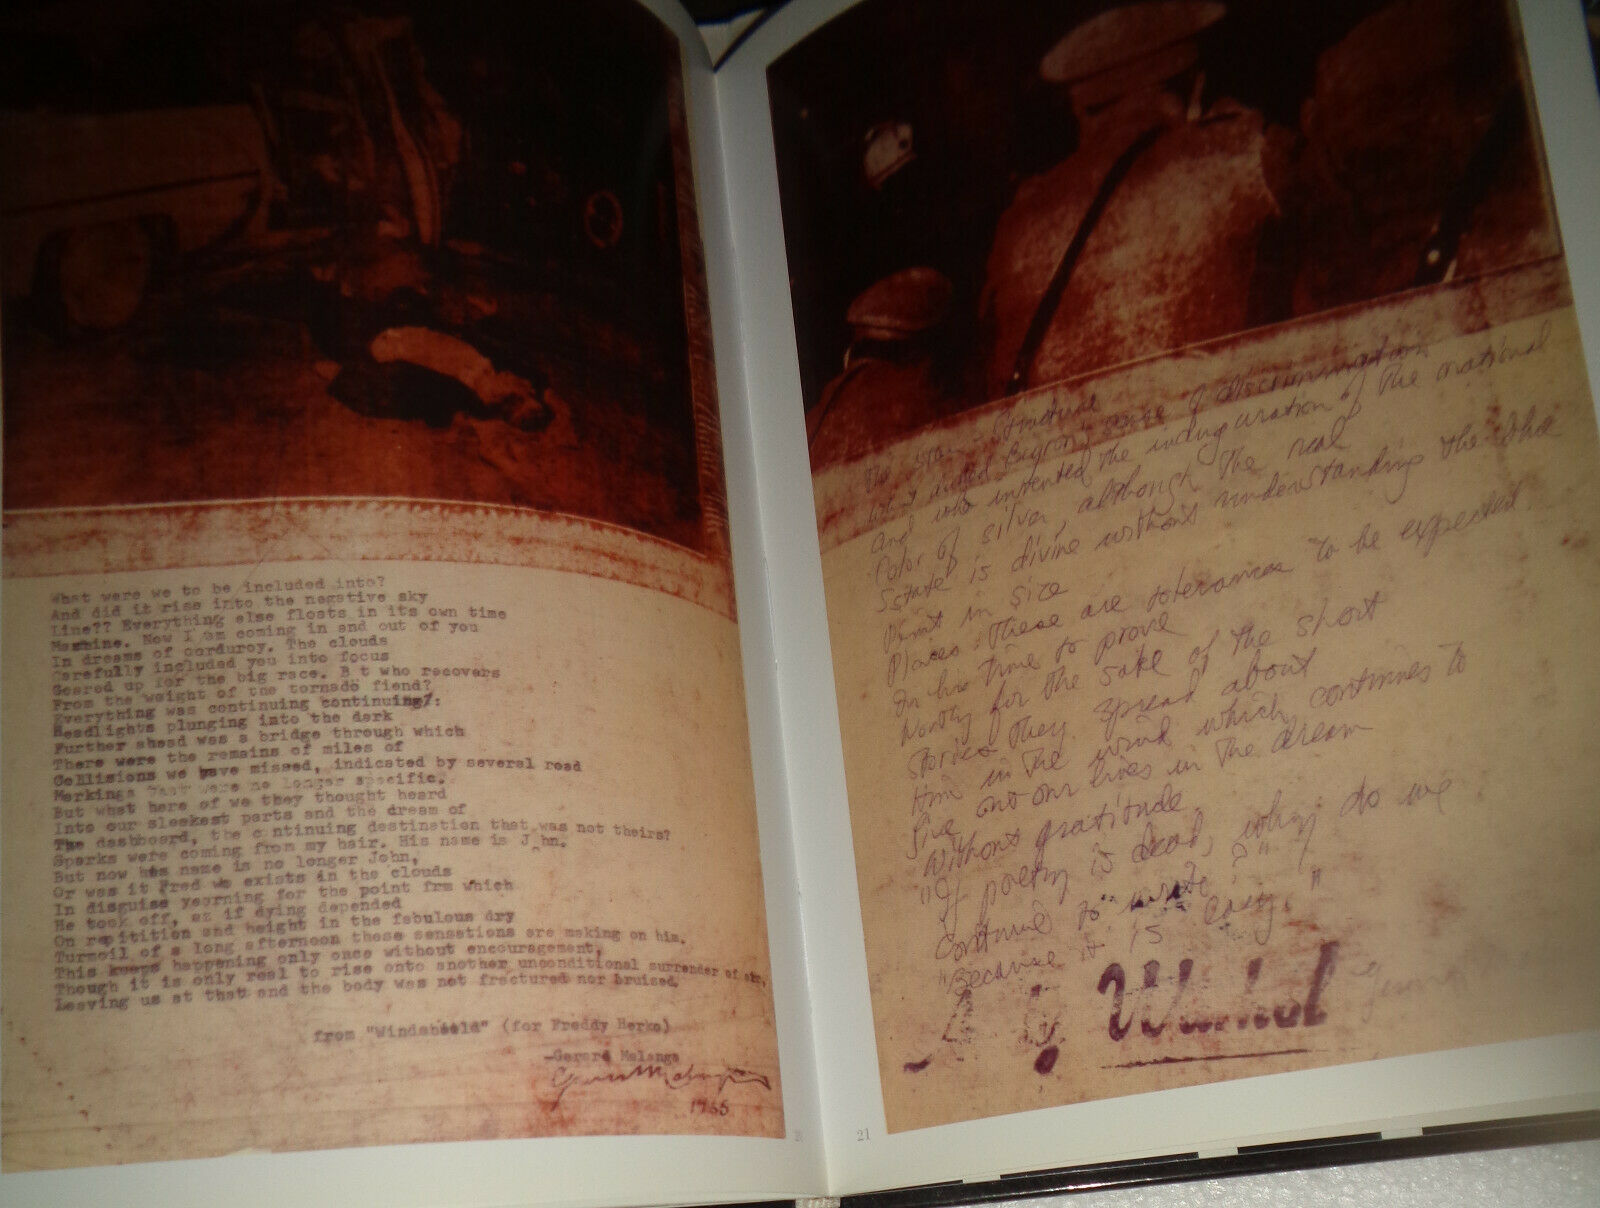 What were we to be included into?
And did it rise into the negative sky
Line?? Everything else floats in its own time
Machine. Now I am coming in and out of you
In dreams of corduroy. The clouds
Carefully included you into focus
Geared up for the big race. B t who recovers
From the weight of the tornado fiend?
Everything was continuing continuing?:
Headlights plunging into the dark
Further ahead was a bridge through which
There were the remains of miles of
Collisions we have missed, indicated by several road
Markings that were no longer specific.
But what here of we they thought heard
Into our sleekest parts and the dream of
The dashboard, the c ntinuing destination that was not theirs?
Sparks were coming from my hair. His name is J hn.
But now his name is no longer John,
Or was it Fred who exists in the clouds
In disguise yearning for the point frm which
He took off, as if dying depended
On repitition and height in the fabulous dry
Turmoil of a long afternoon these sensations are making on him.
This keeps happening only once without encouragement,
Though it is only real to rise onto another unconditional surrender of air,
Leaving us at that and the body was not fractured nor bruised.
from "Windshield" (for Freddy Herko)
—Gerard Malanga
Gerard Malanga
1965
The Structure
sense of discrimination
And who invented the inauguration of the national
Color of silver, although the real
State is divine without understanding the
Print in size
Places. These are tolerances to be expected.
In his time to prove
Worthy for the sake of the short
Stories they spread about
Him in the wind which continues to
live out our lives in the dream
Without gratitude.
"If poetry is dead, why do we
continue to write?"
"Because it is easy."
Warhol
21